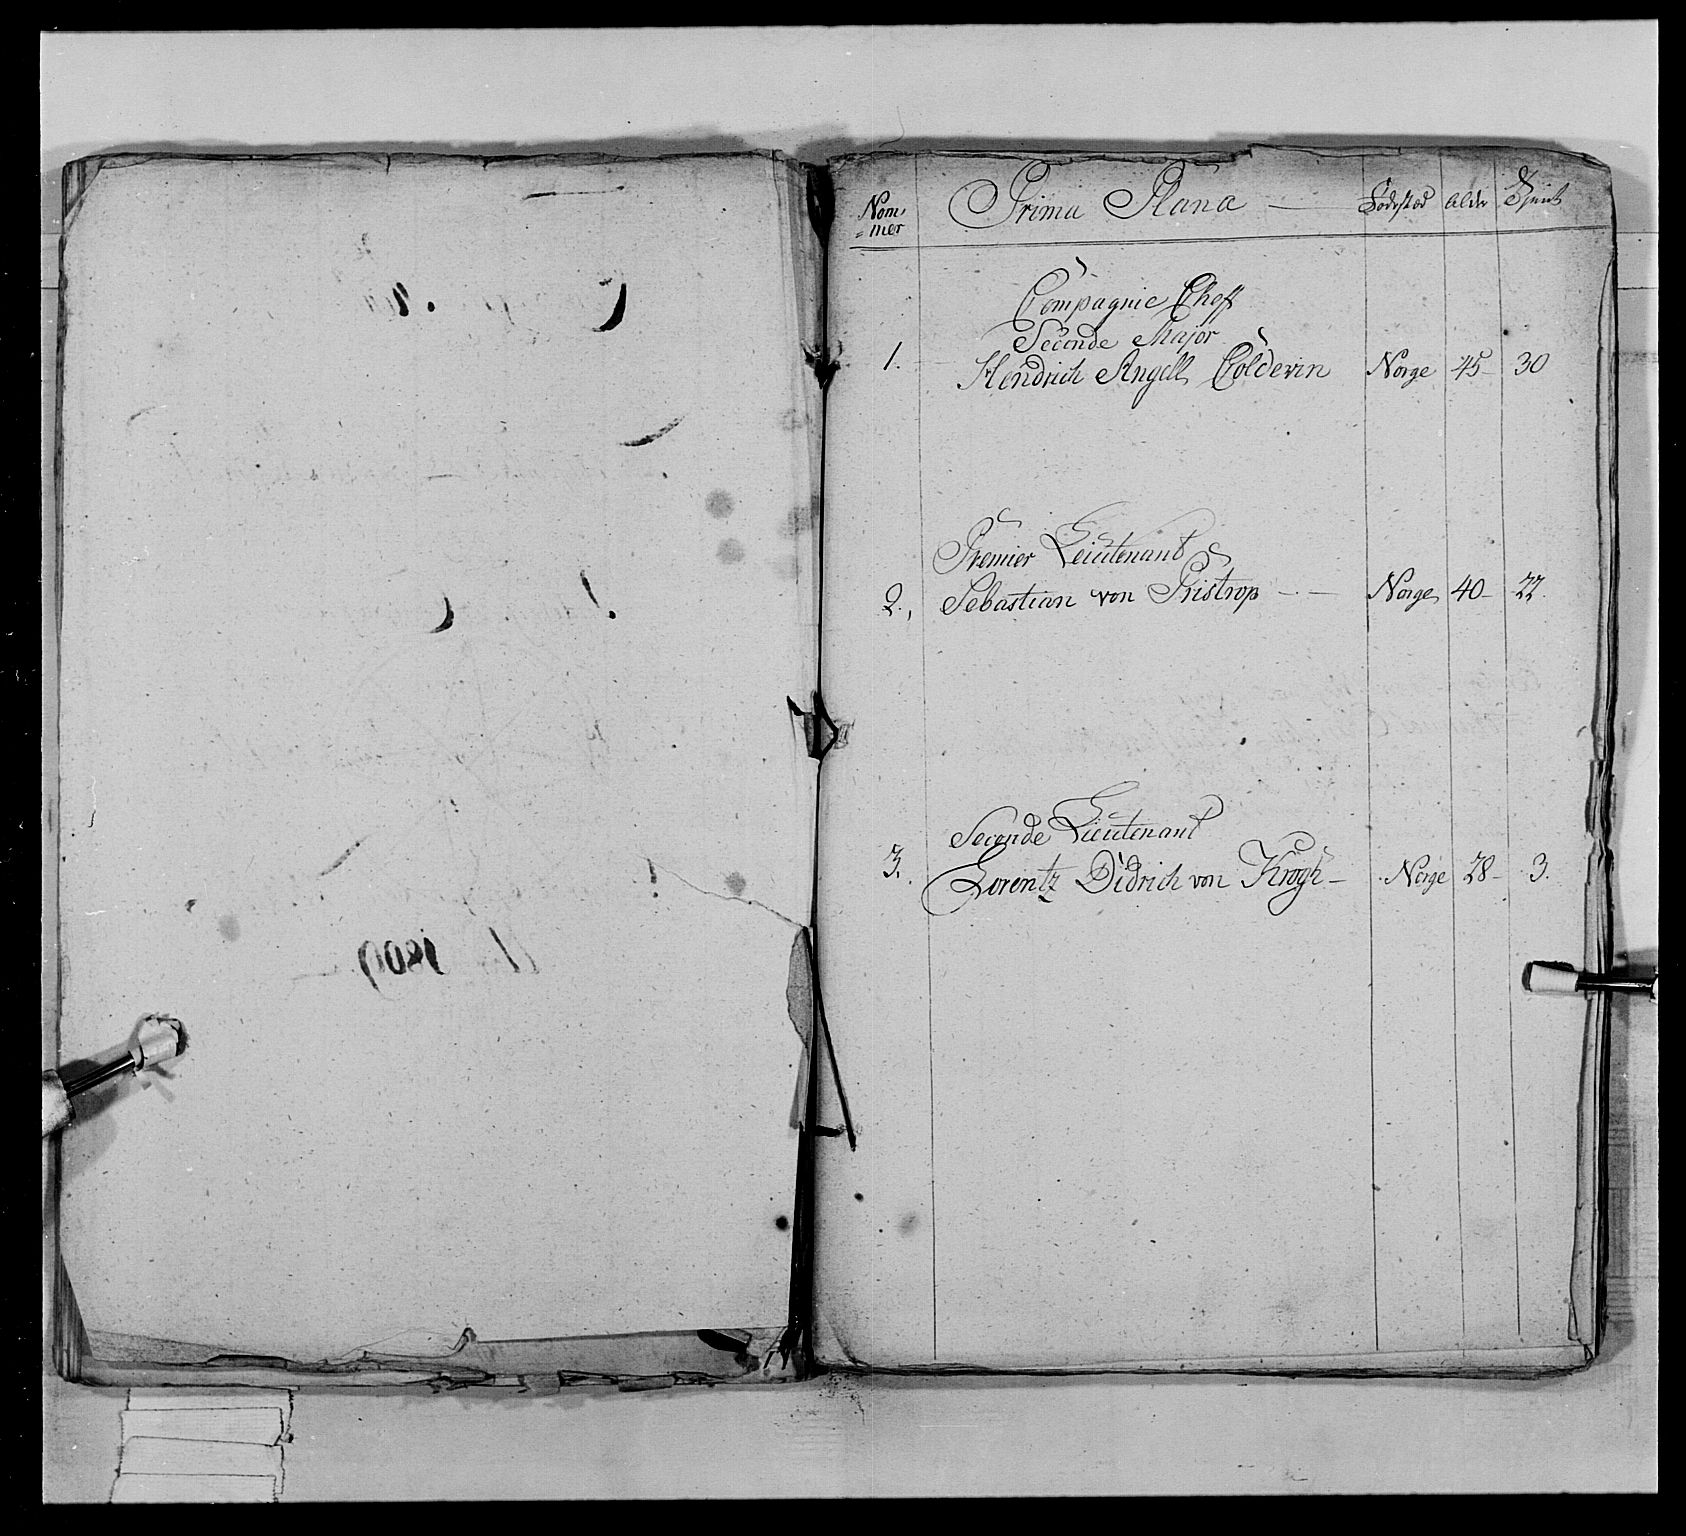 Nom-
=mer
Prima Plana — Fødestæd Alder Tjent
Compagnie Cheff
Seconde Major
1. Hendrich Angell Coldevin Norge 45- 30
Premier Leiutenant
2., Sebastian von Pristrop -.- Norge 40- 22.
Seconde Lieutenant
3. Lorentz Didrich von Krogh - Norge 28- 3.